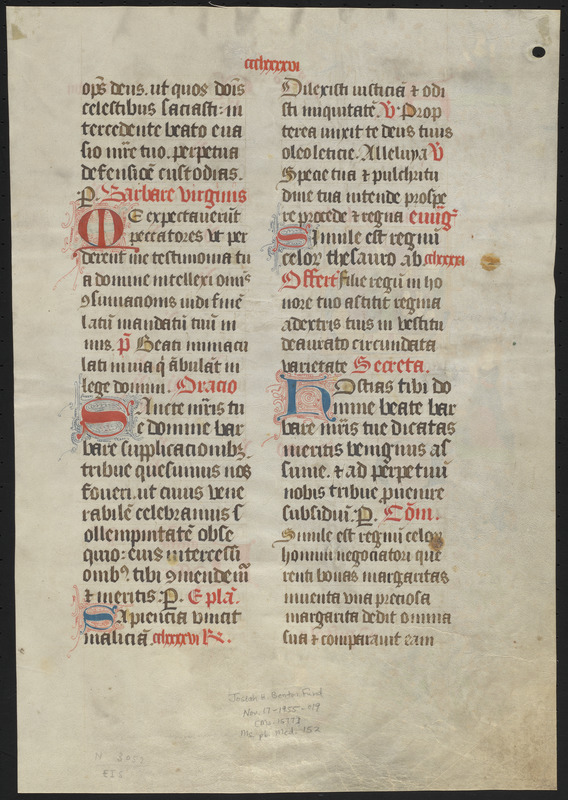 cccclxxxxvi
op̄s deus. ut quos dōis
celestibus saciasti: in
tercedente beato eua
sio mr̄e tuo. perpetua
defensiōe custodias.
P. Barbare virginis
ME expectauerūt
peccatores vt per
derent me testimonia tu
a domine intellexi omīs
ꝯsumacionis uidi finē
latū mandatū tuū ni
mis. p̄ Beati inmacu
lati in uia q̄ ābulāt in
lege domini. Oracio
Sancte mr̄is tu
e domine bar
bare supplicacionibꝫ
tribue quesumus nos
foueri. ut cuius vene
rabilē celebramus s
ollempnitatē obse
quio: eius intercessi
onibꝰ tibi ꝯmendem̄
⁊ meritis. P. Epla.
Sapiencia vincit
maliciā cclxxxxvi R.
Dilexisti iusticiā ⁊ odi
sti iniquitatē. V̄ Prop
terea unxit te deus tuus
oleo leticie. Alleluya V̄
Specie tua ⁊ pulchritu
dine tua intende prospe
re procede ⁊ regna euūg̃
Simile est regnū
celoꝝ thesauro ab cclxxxxi
Offert filie regū in ho
nore tuo astitit regina
adextris tuis in vestitu
deaurato circumdata
varietate Secreta.
Hostias tibi do
mine beate bar
bare mr̄is tue dicatas
meritis benignus as
sume. ⁊ ad perpetuū
nobis tribue ꝓuenire
subsidiū. P. Cōm.
Simile est regnū celoꝝ
homini negociatori que
renti bonas margaritas
inuenta vna preciosa
margarita dedit omnia
sua ⁊ comparauit eam
Nov. 17-1955-